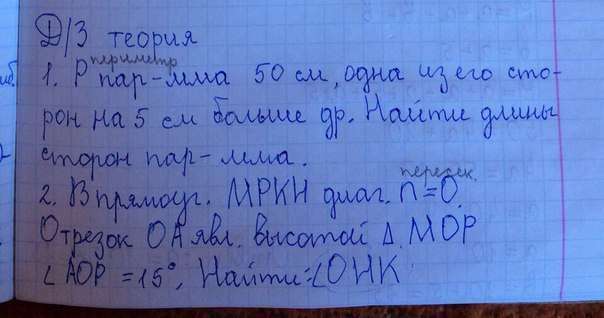 Д/З теория
периметр
1. Р пар-мма 50 см, одна из его сто-
рон на 5 см больше др. Найти длины
сторон пар-мма.
пересек.
2. В прямоуг. МРКН диаг. П = О.
Отрезок ОА явл. высотой Δ МОР
∠ АОР = 15°, Найти: ∠ОНК